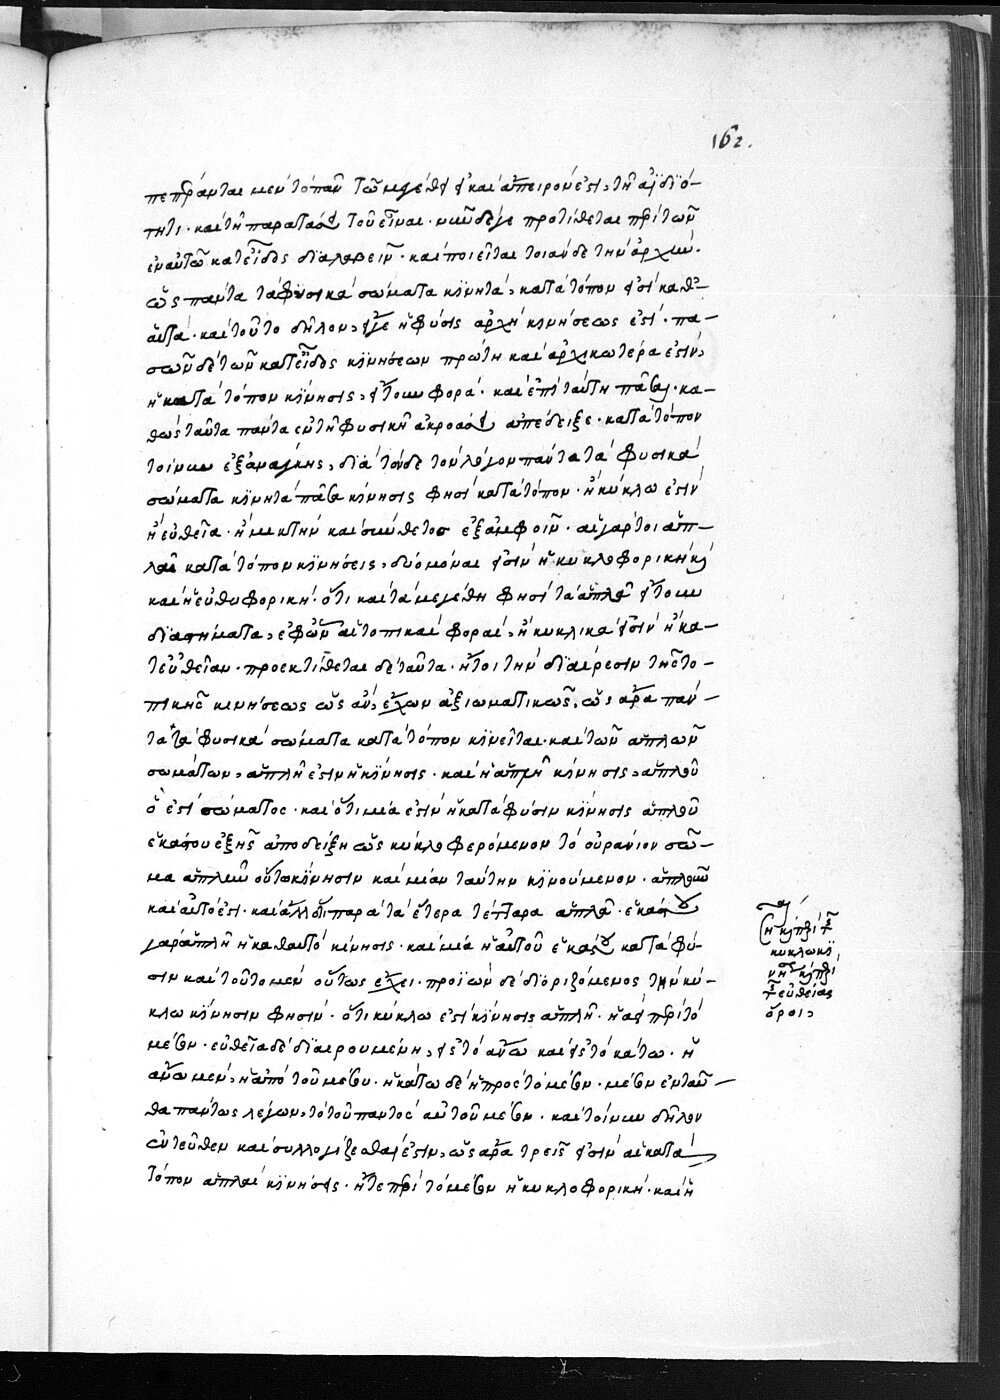 162.
πεπέρανται μὲν τὸ πᾶν τῶ μεγέθει εἰ καὶ ἄπειρόν ἐστι τῆ ἀϊδιό-
τητι· καὶ τῆ παρατάσει τοῦ εἶναι· νῦν δέ γε προτίθεται περὶ τῶν
ἐν αὐτῶ κατ εἶδος διαλαβεῖν· καὶ ποιεῖται τοιάνδε τὴν ἀρχήν·
ὡς πάντα τὰ φυσικὰ σώματα κϊνητὰ, κατὰ τόπον εἰσὶ καθ᾽
αὑτά· καὶ τοῦτο δῆλον, εἴγε ἡ φύσις ἀρχὴ κινήσεως ἐστί· πα-
σῶν δὲ τῶν κατ εἶδος κϊνήσεων πρώτη καὶ ἀρχικωτέρα ἐστὶν,
ἡ κατὰ τόπον κίνησις, εἴτουν φορά· καὶ ἐπὶ ταύτη πᾶσαι· κα-
θὼς ταῦτα πάντα ἐν τῆ φυσικῆ ἀκροάσει ἀπέδειξε· κατὰ τόπον
τοίνυν ἐξανάγκης, διὰ τόνδε τὸν λόγον πάντα τὰ φυσικὰ
σώματα κϊνητὰ πᾶσα κίνησις φησὶ κατὰ τόπον· ἢ κύκλω ἐστὶν
ἢ εὐθεῖα· ἢ μικτὴν καὶ σύνθετος ἐξ ἀμφοῖν· αἱ γάρ τοι ἁπ-
λαῖ κατὰ τόπον κϊνήσεις, δύο μόναι εἰσὶν ἡ κυκλοφορικὴ καὶ
καὶ ἡ εὐθυφορική· ὅτι καὶ τὰ μεγέθη φησὶ τὰ ἁπλᾶ εἴτουν
διαστήματα, ἐφ ὧν αἱ τοπικαὶ φοραὶ, ἢ κυκλικά εἰσιν ἢ κα-
τ εὐθεῖαν· προεκτίθεται δὲ ταῦτα· ἤτοι τὴν διαίρεσιν τῆς το-
πικῆς κινήσεως ὡς ἂν, ἔχων ἀξιωματικῶς, ὡς ἄρα πάν-
τα τὰ φυσικὰ σώματα κατὰ τόπον κϊνεῖται· καὶ τῶν ἁπλῶν
σωμάτων, ἁπλῆ ἐστιν ἡ κϊνησις· καὶ ἡ ἁπλῆ κίνησις, ἁπλοῦ
ὅ ἐστι σώματος· καὶ ὅτι μία ἐστὶν ἡ κατὰ φύσιν κϊνησις ἁπλοῦ
ἑκάστου ἑξῆς ἀποδείξη ὡς κύκλω φερόμενον τὸ οὐράνιον σῶ-
μα ἁπλῆν οὕτω κϊνησιν καὶ μίαν ταύτην κϊνούμενον· ἁπλοῦν
καὶ αὐτό ἐστι· καὶ ἄλλό τι παρὰ τὰ ἕτερα τέτταρα ἁπλᾶ· ἑκάστου
γὰρ ἁπλῆ ἡ καθ αυτὸ κίνησις· καὶ μία ἡ αὐτοῦ ἑκάστου κατὰ φύ-
σιν καὶ τοῦτο μὲν οὕτως ἔχει· προϊὼν δὲ διοριζόμενος τὴν κύ-
κλω κϊνησιν φησίν· ὅτι κύκλω ἐστὶ κϊνησις ἁπλῆ· ἡ περὶ τὸ
μέσον· εὐθεῖα δὲ διαιρουμένη, εἰς τὸ ἄνω καὶ εἰς τὸ κάτω· ἡ
ἄνω μὲν, ἡ ἀπὸ τοῦ μέσου· ἡ κάτω δὲ ἡ πρὸς τὸ μέσον· μέσον ἐνταῦ-
θα πάντως λέγων, τὸ τοῦ παντὸς αὐτοῦ μέσον· καὶ τοίνυν δῆλον
ἐντεῦθεν καὶ συλλογίζεσθαι ἐστιν, ὡς ἄρα τρεῖς εἰσὶν αἱ κατὰ
τόπον ἁπλαὶ κϊνήσεις· ἥ τε περὶ τὸ μέσον ἡ κυκλοφορική· καὶ ἡ
κύκλω κϊ
εὐθείας
ὅροι,